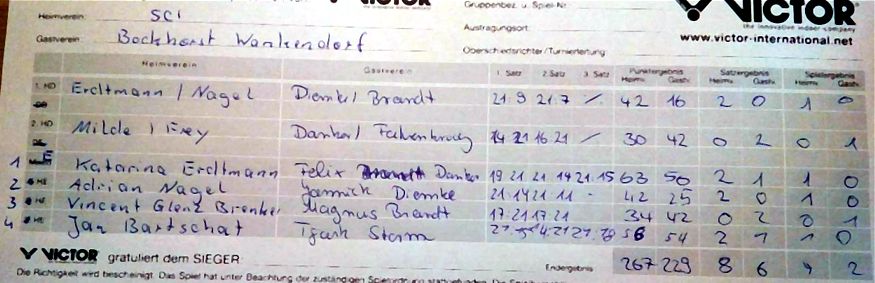 VICTOR
Gruppenbez. u. Spiel-Nr.
VICTOR
the innovative indoor company
Heimverein: SCI
Austragungsort:
www.victor-international.net
Gastverein: Bockhorst Wankendorf
Oberschiedsrichter/Turnierleitung
Heimverein Gastverein 1. Satz 2. Satz 3. Satz Punktergebnis Satzergebnis Spielergebnis
Heimv. Gastv. Heimv. Gastv. Heimv. Gastv.
1. HD Erdtmann / Nagel Diemke/ Brandt 21.9 21.7 / 42 16 2 0 1 0
2. HD Milde / Frey Danker/ 14 21 16 21 / 30 42 0 2 0 1
1 Katarina Erdtmann Felix Danker 19 21 21 14 21.15 63 50 2 1 1 0
2 HE Adrian Nagel Yannick Diemke 21.14 21.11 - 42 25 2 0 1 0
3 HE Vincent Glenz Brenker Magnus Brandt 17.21 17.21 34 42 0 2 0 1
4 HE Jan Bartschat Tjark Storm 54 2 1 1 0
VICTOR gratuliert dem SIEGER
Endergebnis 267 229 8 6 4 2
Die Richtigkeit wird bescheinigt. Das Spiel hat unter Beachtung der zuständigen Spielordnung stattgefunden.